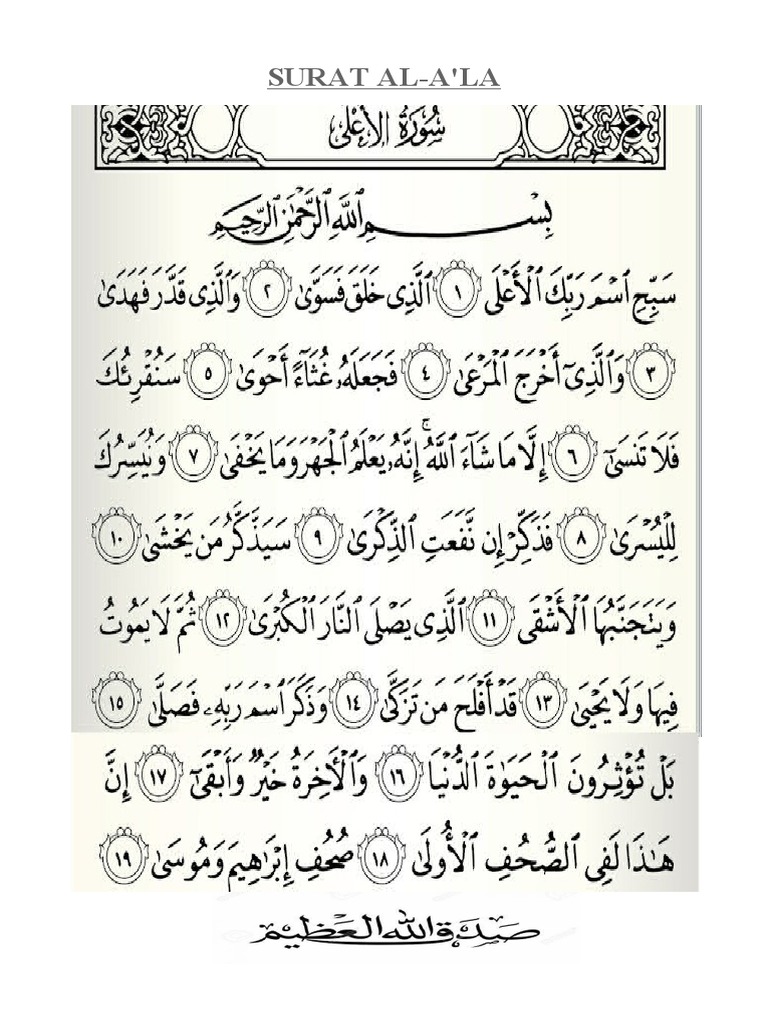 SURAT AL-A'LA
سُورَةُ الأَعْلَى
بِسْمِ ٱللَّهِ ٱلرَّحْمَٰنِ ٱلرَّحِيمِ
سَبِّحِ ٱسْمَ رَبِّكَ ٱلْأَعْلَى ١ ٱلَّذِى خَلَقَ فَسَوَّىٰ ٢ وَٱلَّذِى قَدَّرَ فَهَدَىٰ
٣ وَٱلَّذِىٓ أَخْرَجَ ٱلْمَرْعَىٰ ٤ فَجَعَلَهُۥ غُثَآءً أَحْوَىٰ ٥ سَنُقْرِئُكَ
فَلَا تَنسَىٰٓ ٦ إِلَّا مَا شَآءَ ٱللَّهُ ۚ إِنَّهُۥ يَعْلَمُ ٱلْجَهْرَ وَمَا يَخْفَىٰ ٧ وَنُيَسِّرُكَ
لِلْيُسْرَىٰ ٨ فَذَكِّرْ إِن نَّفَعَتِ ٱلذِّكْرَىٰ ٩ سَيَذَّكَّرُ مَن يَخْشَىٰ ١٠
وَيَتَجَنَّبُهَا ٱلْأَشْقَى ١١ ٱلَّذِى يَصْلَى ٱلنَّارَ ٱلْكُبْرَىٰ ١٢ ثُمَّ لَا يَمُوتُ
فِيهَا وَلَا يَحْيَىٰ ١٣ قَدْ أَفْلَحَ مَن تَزَكَّىٰ ١٤ وَذَكَرَ ٱسْمَ رَبِّهِۦ فَصَلَّىٰ ١٥
بَلْ تُؤْثِرُونَ ٱلْحَيَوٰةَ ٱلدُّنْيَا ١٦ وَٱلْأَخِرَةُ خَيْرٌ وَأَبْقَىٰٓ ١٧ إِنَّ
هَٰذَا لَفِى ٱلصُّحُفِ ٱلْأُولَىٰ ١٨ صُحُفِ إِبْرَٰهِيمَ وَمُوسَىٰ ١٩
صدق الله العظيم